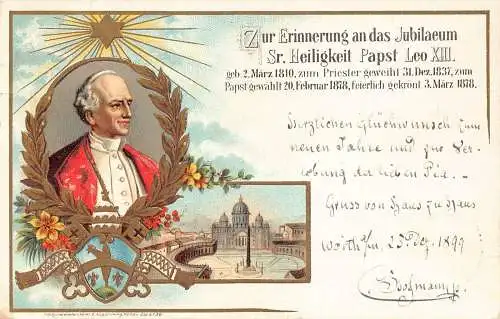 Zur Erinnerung an das Jubilaeum
Sr. Heiligkeit Papst Leo XIII.
geb. 2. März 1810, zum Priester geweiht 31. Dez. 1837, zum
Papst gewählt 20. Februar 1878, feierlich gekrönt 3. März 1878.
Herzlichen Glückwunsch zum
neuen Jahre und zur Ver-
lobung der lieben
Gruss von Haus zu Haus
Wörth 25 Dez. 1899